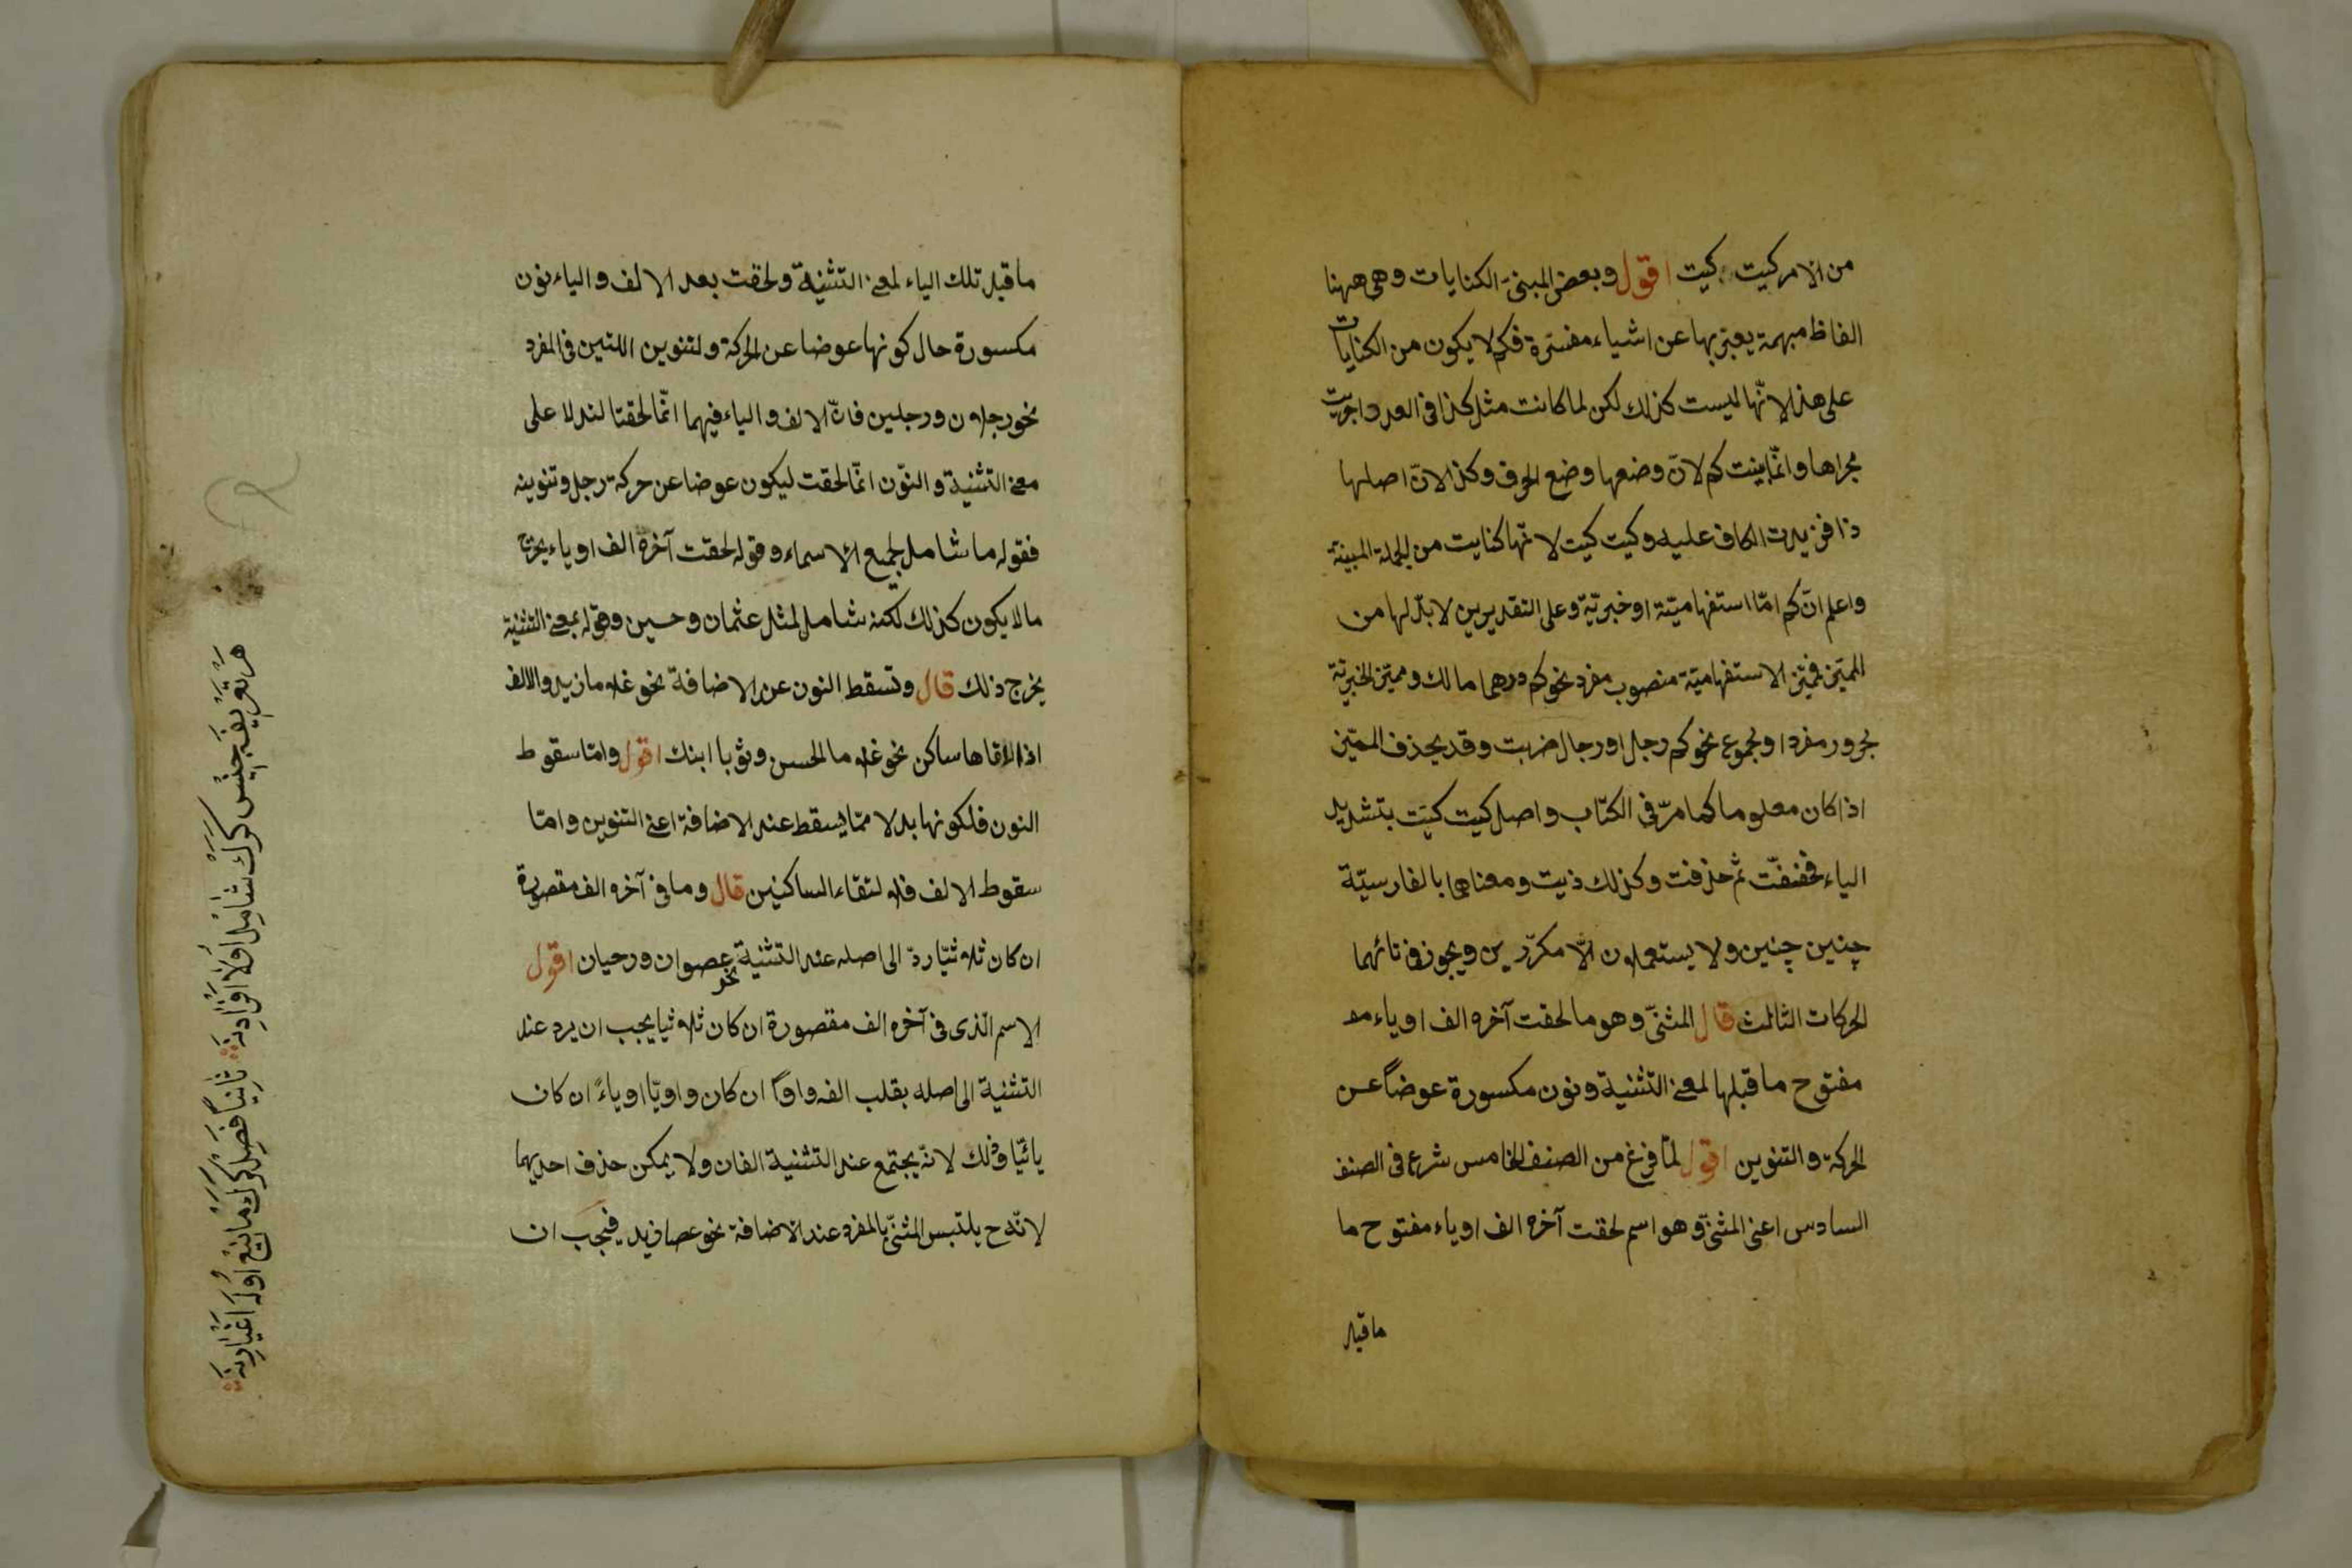 من الامر كيت كيت اقول وبعض المبنى الكنايات وهى ههنا
الفاظ مبهمة يعبّر بها عن اشياء مفسّرة فكم لا يكون من الكنايات
على هذا لانّها ليست كذلك لكن لما كانت مثل كذا فى العدد اجريت
مجراها وانّما بنيت كم لانّ وضعها وضع الحرف وكذا لانّ اصلها
ذا فزيدت الكاف عليه وكيت كيت لانّها كنايت من الجملة المبينة
واعلم انّ كم امّا استفهاميّة او خبريّة وعلى التقديرين لا بدّ لها من
المميّز فمميّز الاستفهاميّة منصوب مفرد نحو كم درهما مالك ومميّز الخبريّة
مجرور مفرد او مجموع نحو كم رجل او رجال ضربت وقد يحذف المميّز
اذا كان معلوما كما مرّ فى الكتاب واصل كيت كيّت بتشديد
الياء فخفّفت ثم حذفت وكذلك ذيت ومعناها بالفارسيّة
چنين چنين ولا يستعملون الّا مكرّرين ويجوز فى تائهما
الحركات الثالث قال المثنّى وهو ما لحقت آخره الف او ياء مو
مفتوح ما قبلها لمعنى التثنية ونون مكسورة عوضاً عن
الحركة والتنوين اقول لمّا فرغ من الصنف الخامس شرع فى الصنف
السادس اعنى المثنّى وهو اسم لحقت آخره الف او ياء مفتوح ما
ما قبل
ما قبل تلك الياء لمعنى التثنية ولحقت بعد الالف والياء نون
مكسورة حال كونها عوضا عن الحركة والتنوين اللتين فى المفرد
نحو رجلان ورجلين فانّ الالف والياء فيهما انّما لحقتا لتدلا على
معنى التثنية والنّون انّما لحقت ليكون عوضا عن حركة رجل وتنوينه
فقوله ما شامل لجميع الاسماء وقوله لحقت آخره الف او ياء يخرج
ما لا يكون كذلك لكنّه شامل لمثل عثمان وحسين وقوله لمعنى التثنية
يخرج ذلك قال وتسقط النون عند الاضافة نحو غلاما زيد والالف
اذا لاقاها ساكن نحو غلاما الحسن وثوبا ابنك اقول وامّا سقوط
النون فلكونها بدلا ممّا يسقط عند الاضافة اعنى التنوين وامّا
سقوط الالف فلالتقاء الساكنين قال وما فى آخره الف مقصورة
ان كان ثلاثيّا ردّ الى اصله عند التثنية نحو عصوان ورحيان اقول
الاسم الّذى فى آخره الف مقصورة ان كان ثلاثيا يجب ان يرد عند
التثنية الى اصله بقلب الفه واواً ان كان واويّا او ياءً ان كان
يائيّا وذلك لانّه يجتمع عند التثنية الفان ولا يمكن حذف احديهما
لانّه ح يلتبس المثنّى بالمفرد عند الاضافة نحو عصا زيد فيجب ان
هر تعريفه جنس كرك شامل اوله افرادينه ثانياً فصل كرك مانع اوله اغيارينه